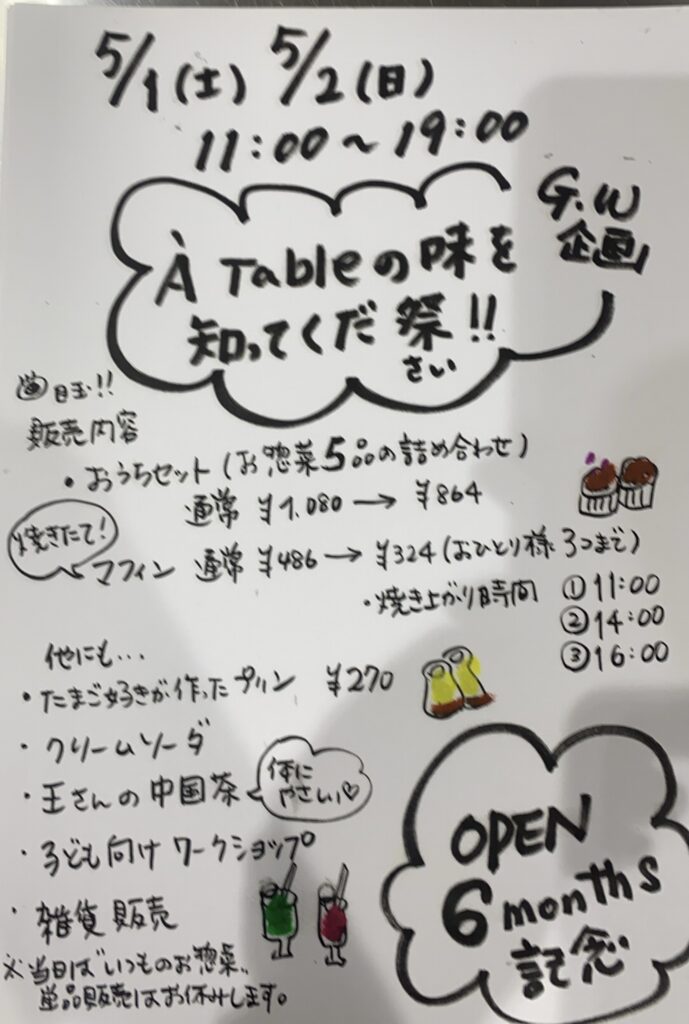 5/1(土) 5/2(日)
11:00〜19:00
G.W
企画
À Tableの味を
知ってくだ祭!!
さい
目玉!!
販売内容
・おうちセット(お惣菜5品の詰め合わせ)
通常 ¥1.080→¥864
焼きたて!
マフィン 通常 ¥486→¥324(おひとり様3つまで)
・焼き上がり時間 ①11:00
②14:00
③16:00
他にも…
・たまご好きが作ったプリン ¥270
・クリームソーダ
・王さんの中国茶
体に
やさしい♡
・子ども向けワークショップ
・雑貨販売
※当日は"いつものお惣菜"
単品販売はお休みします。
OPEN
6 months
記念